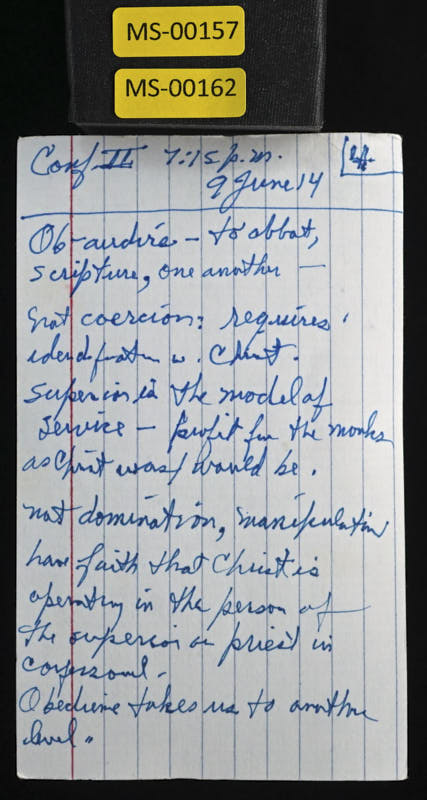 MS-00157
MS-00162
Conf II 7:15 p.m. 4.
9 June 14
Ob-audire - to abbot,
scripture, one another —
not coercion: requires
identification w. Christ.
superior is the model of
service - profit for the monks
as Christ was/would be.
not domination, manipulation
have faith that Christ is
operating in the person of
the superior or priest in
confessional.
Obedience takes us to another
level.